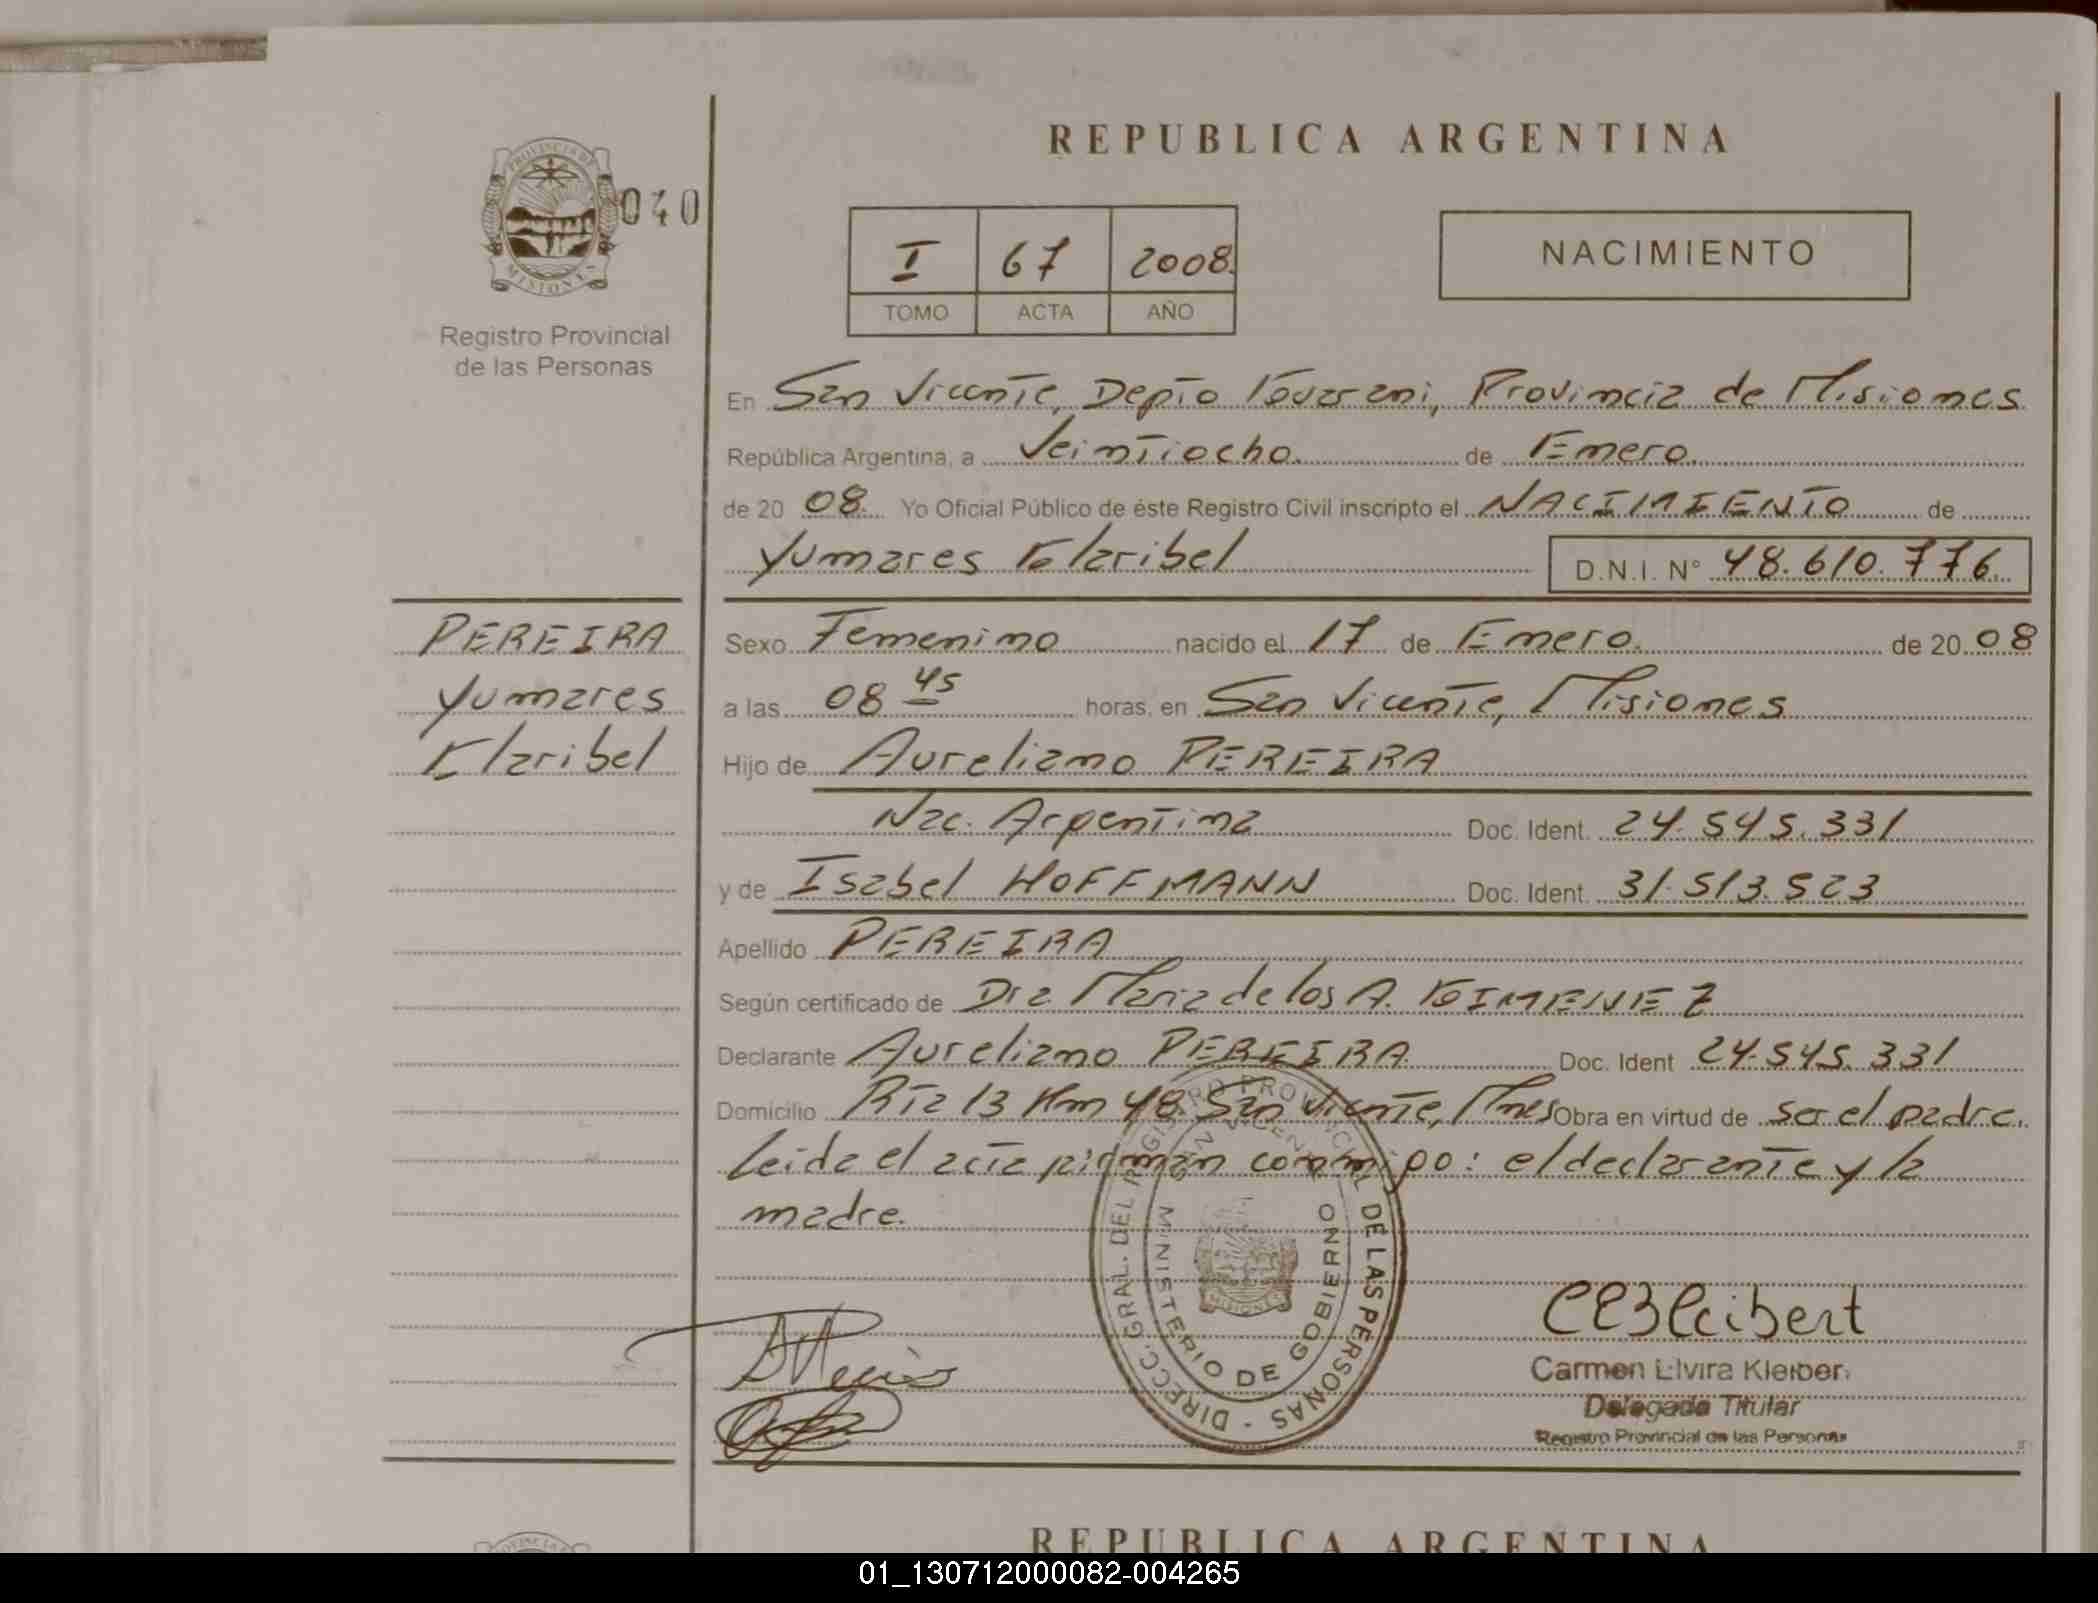 REPUBLICA ARGENTINA
PROVINCIA DE
MISIONES
040
Registro Provincial
de las Personas
I 67 2008
TOMO ACTA AÑO
NACIMIENTO
En San Vicente, Depto Guarani, Provincia de Misiones
República Argentina, a Veintiocho. de Enero.
de 20 08. Yo Oficial Público de éste Registro Civil inscripto el NACIMIENTO de
Yumares Glaribel D.N.I. N° 48.610.776.
PEREIRA
Yumares
Glaribel
Sexo Femenino nacido el 17 de Enero. de 20 08
a las 08 45 horas, en San Vicente, Misiones
Hijo de Aureliano PEREIRA
Nac. Argentina Doc. Ident. 24.545.331
y de Isabel HOFFMANN Doc. Ident. 31.513.523
Apellido PEREIRA
Según certificado de Dra Maria de los A. GIMENEZ
Declarante Aureliano PEREIRA Doc. Ident 24.545.331
Domicilio Rta 13 Km 48 San Vicente, Mnes Obra en virtud de ser el padre.
Leida el acta firman conmigo: el declarante y la
madre.
DIRECC. GRAL. DEL REGISTRO PROVINCIAL DE LAS PERSONAS -
SAN VICENTE
MINISTERIO DE GOBIERNO
MISIONES
Carmen Elvira Kleiber
Delegada Titular
Registro Provincial de las Personas
REPUBLICA ARGENTINA
01_130712000082-004265